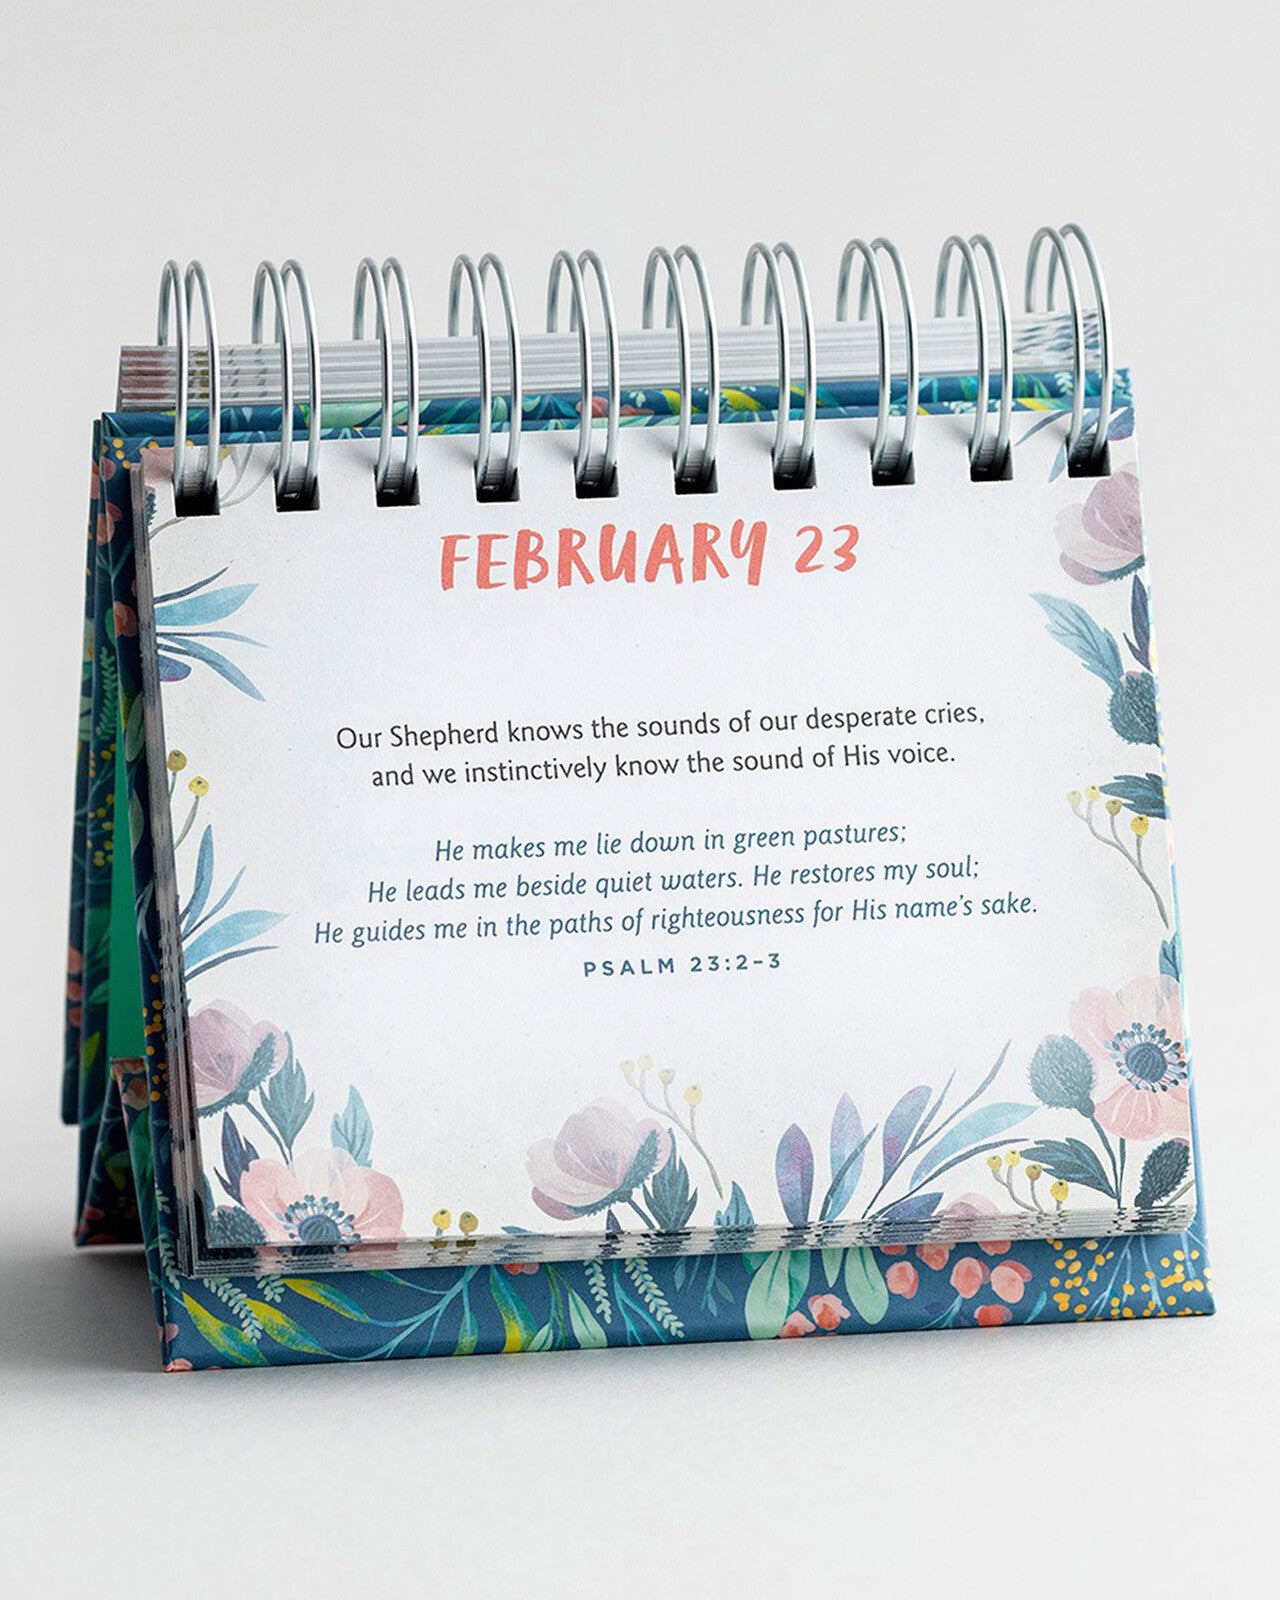 FEBRUARY 23
Our Shepherd knows the sounds of our desperate cries,
and we instinctively know the sound of His voice.
He makes me lie down in green pastures;
He leads me beside quiet waters. He restores my soul;
He guides me in the paths of righteousness for His name's sake.
PSALM 23:2–3